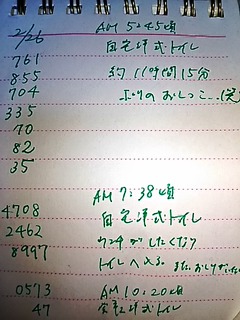 2/26 AM 5:45頃
761 自宅洋式トイレ
855 約11時間15分
704 ぶりのおしっこ…(笑)
335
70
82
35
AM 7:38頃
4708 自宅洋式トイレ
2462 ウンチがしたくなり
8997 トイレへ
また、おしり
0573 AM 10:20頃
47 洋式トイレ